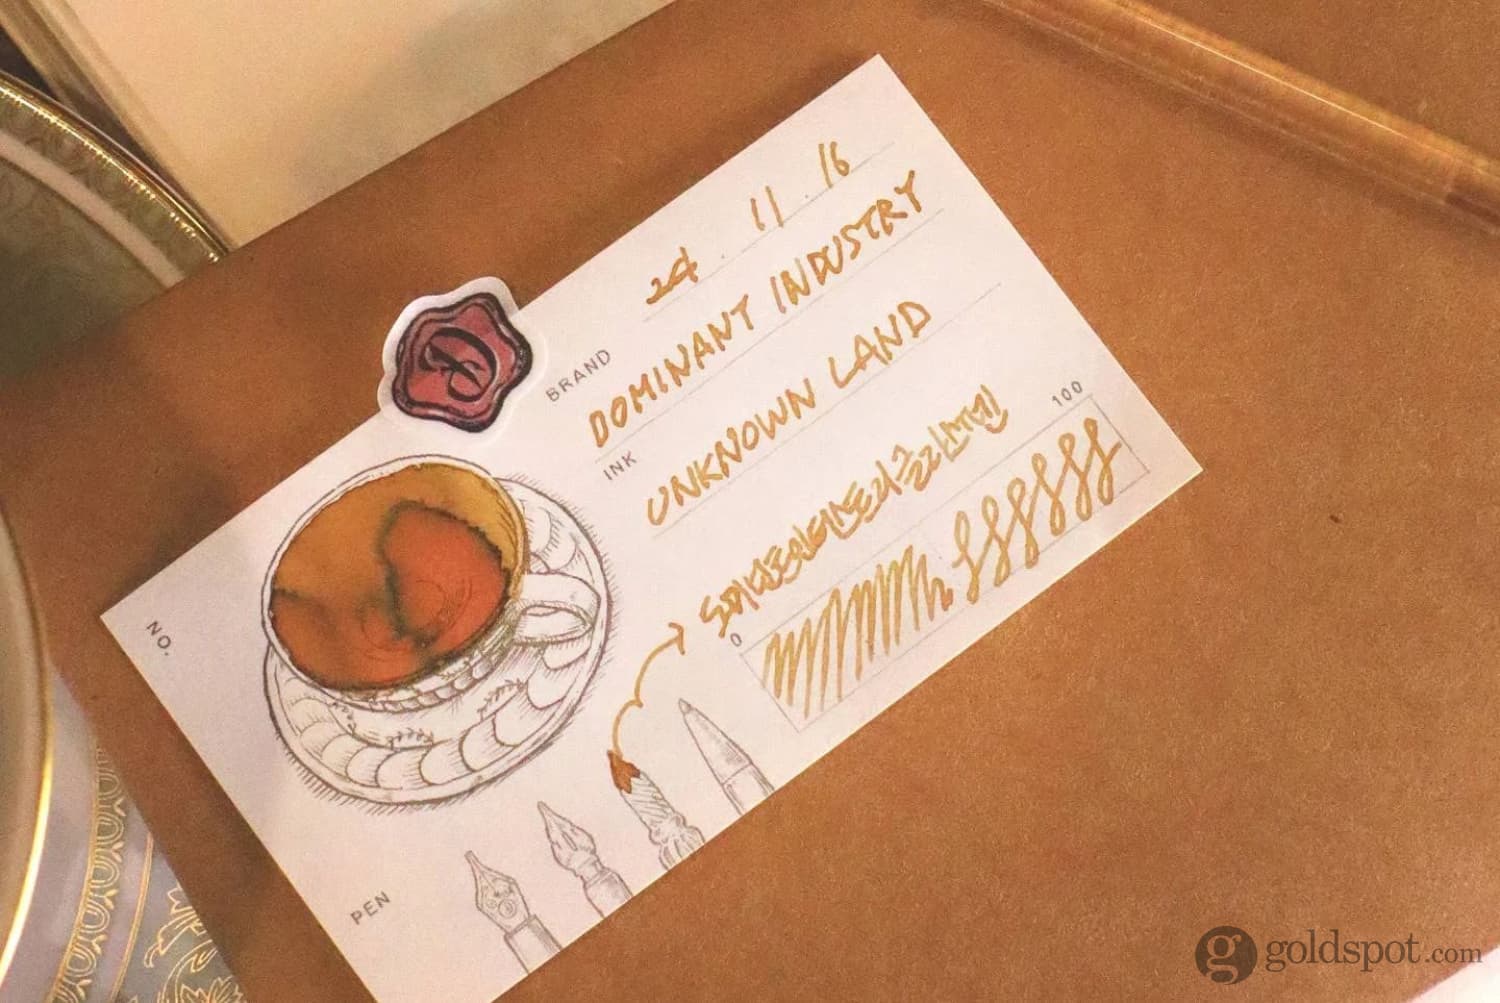 24 . 11 . 16
BRAND DOMINANT INDUSTRY
INK UNKNOWN LAND
0 100
NO.
PEN
g goldspot.com